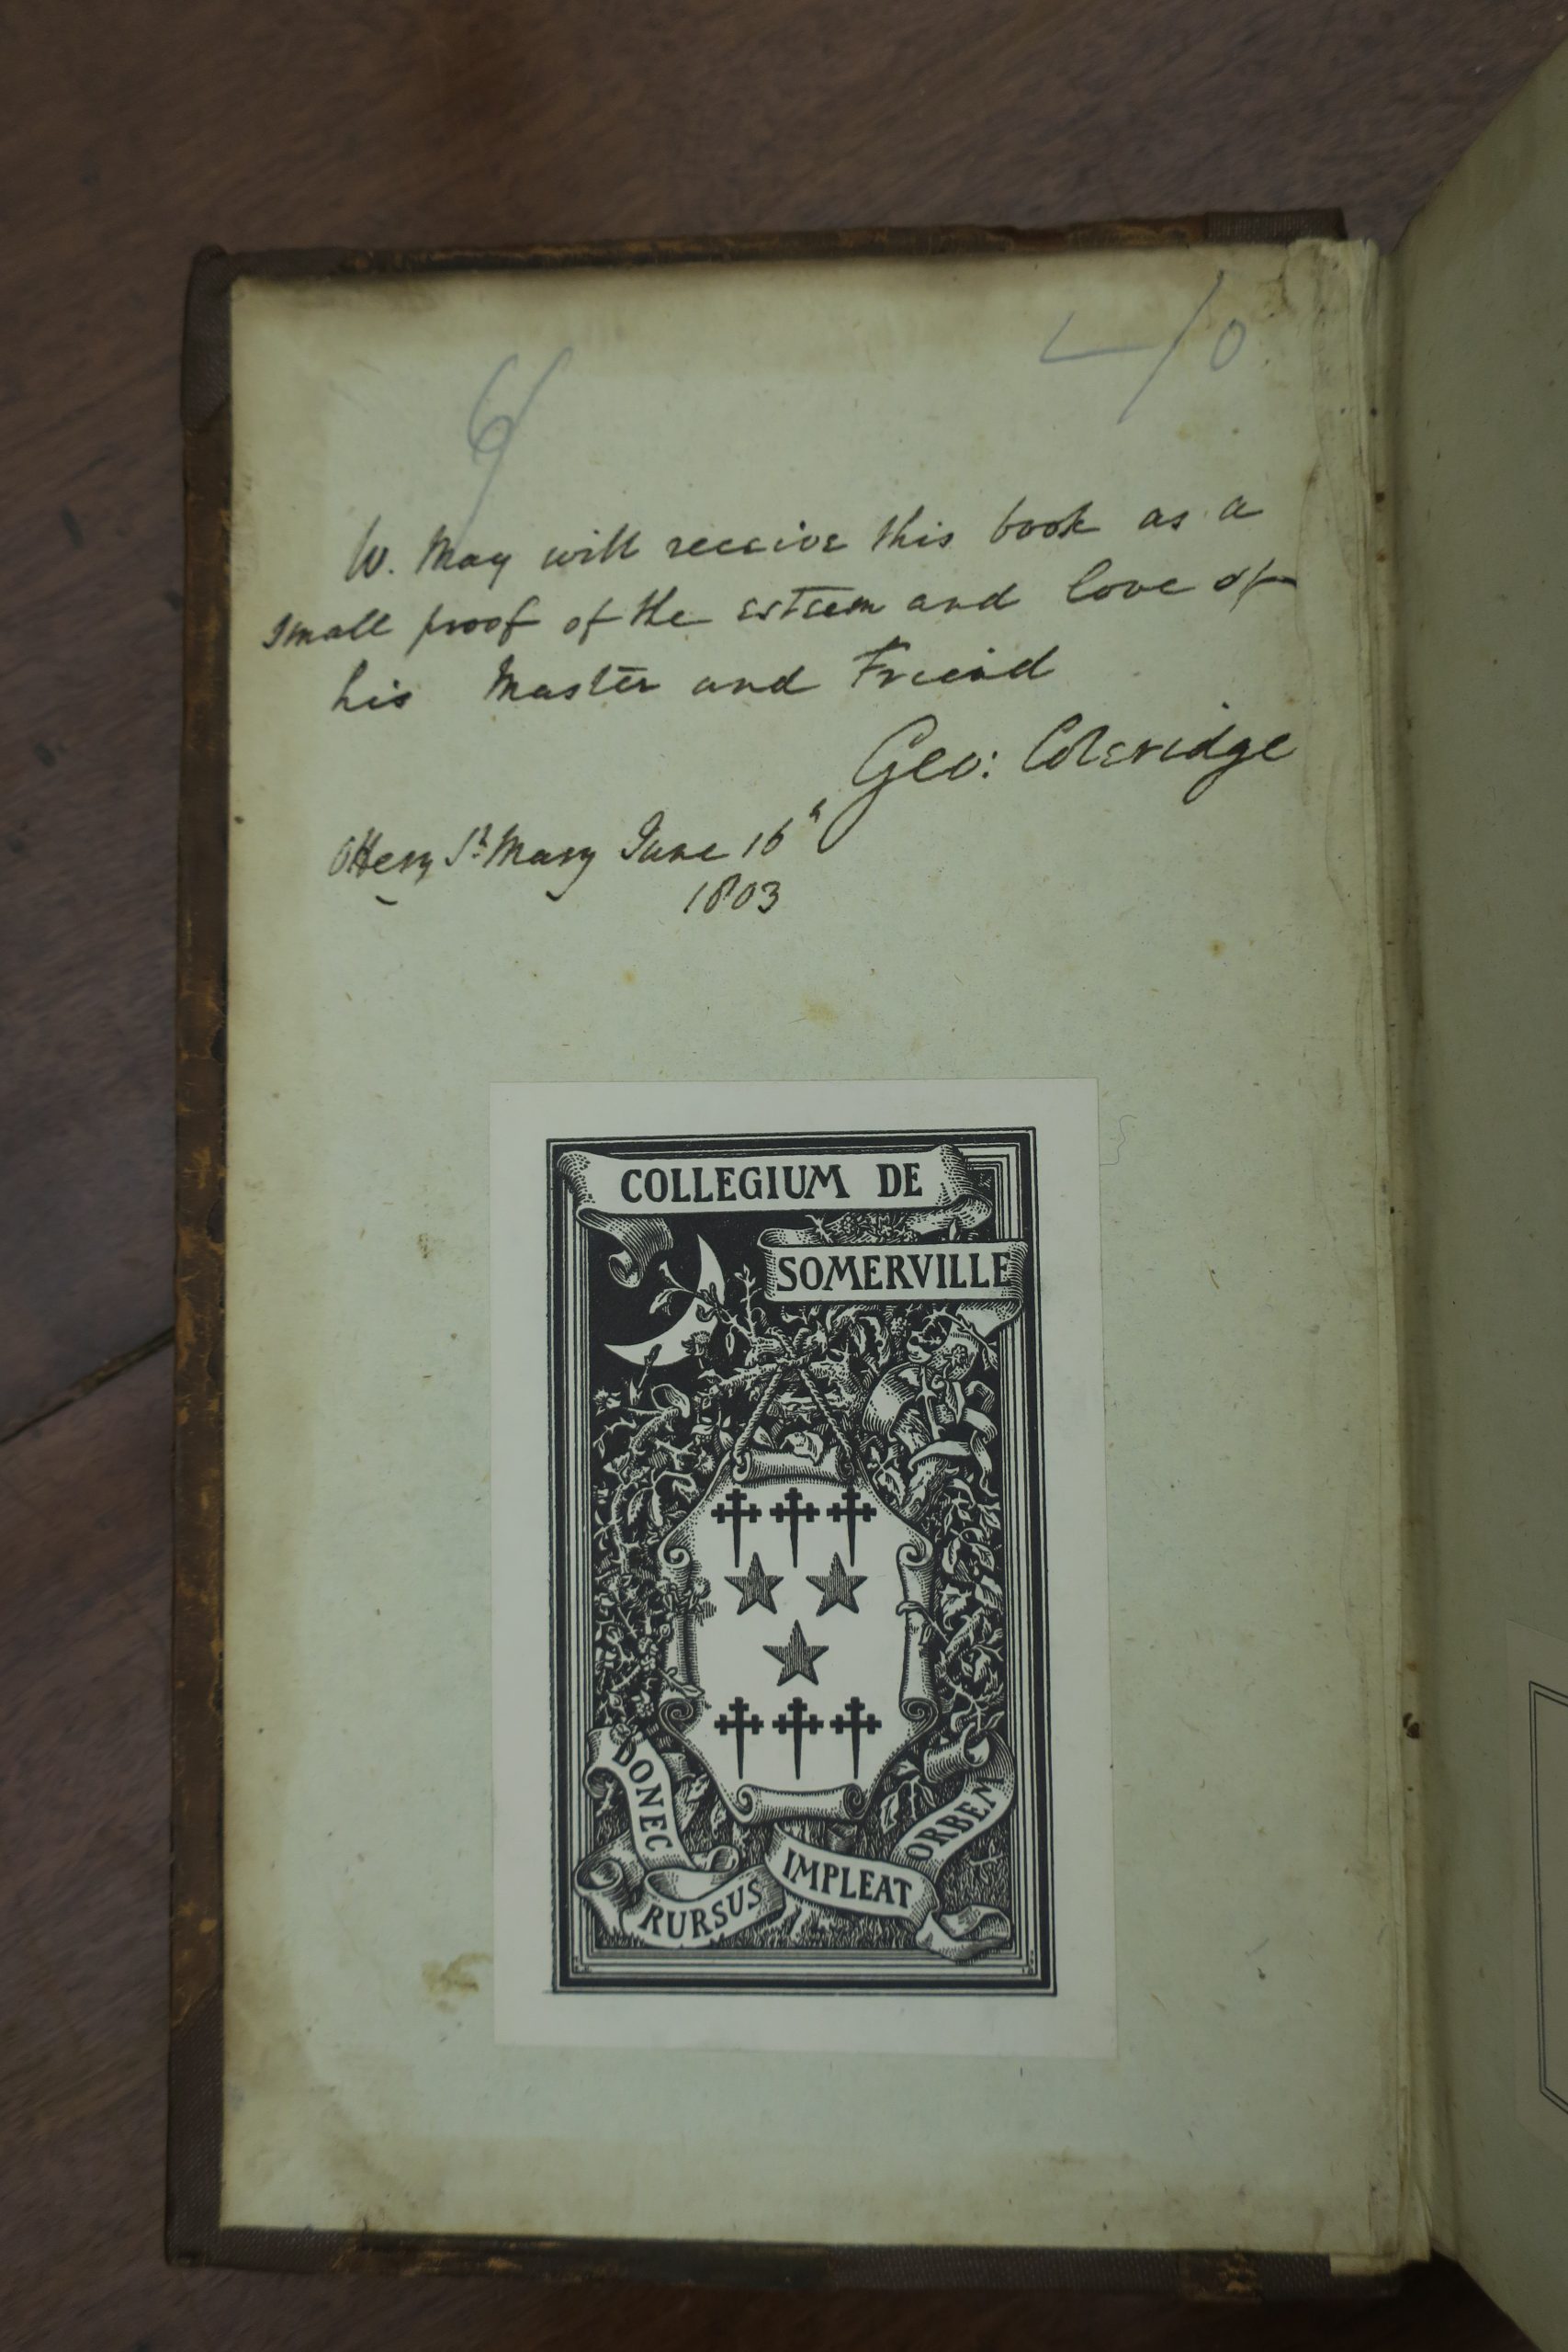 6/
-/0
W. May will receive this book as a
small proof of the esteem and love of
his Master and Friend
Geo: Coleridge
Ottery St. Mary June 16h
1803
COLLEGIUM DE
SOMERVILLE
DONEC
RURSUS
IMPLEAT
ORBEM